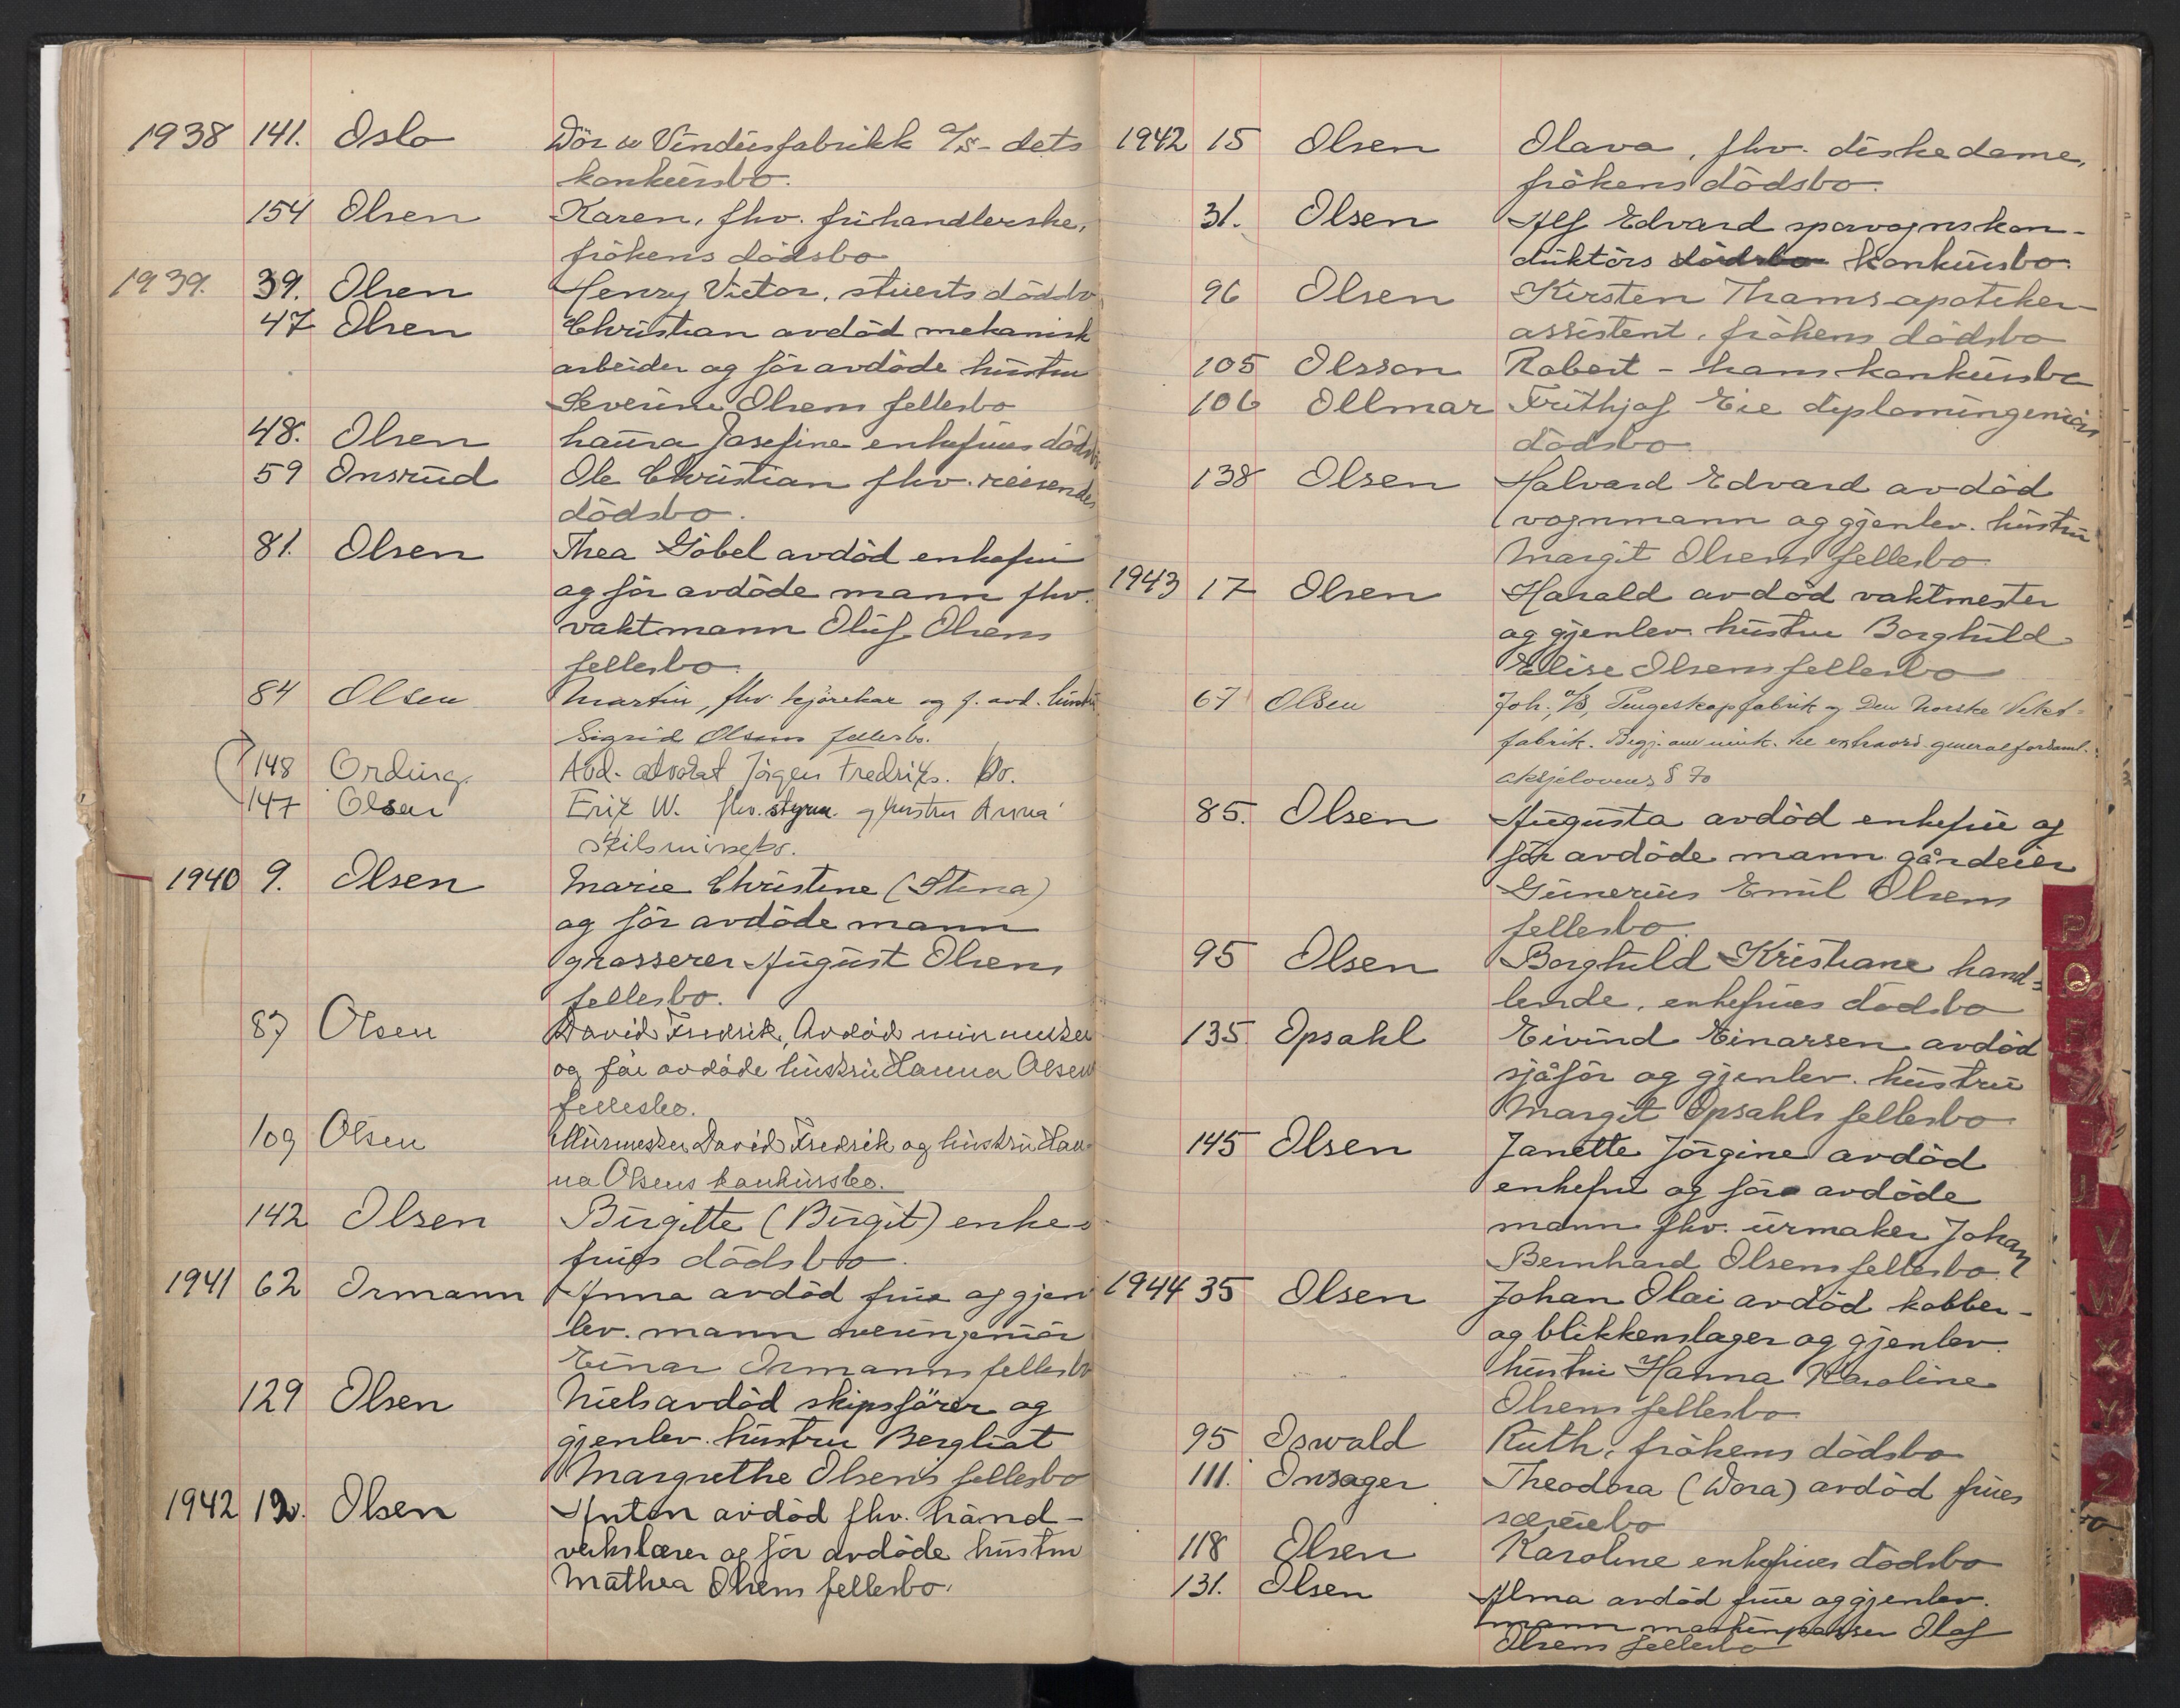 1938 141. Oslo Dör & Vindusfabrikk A/S - dets
konkursbo.
154 Olsen Karen, fhv. fruhandlerske,
frökens dödsbo
1939. 39. Olsen Henry Victor, stuerts dödsbo
47 Olsen Christian avdöd mekanisk
arbeider og för avdöde hustru
Severine Olsens fellesbo
48. Olsen Laura Josefine enkefrues dödsbo
59 Onsrud Ole Christian fhv. reisendes
dödsbo.
81. Olsen Thea Göbel avdöd enkefru
og för avdöde mann fhv.
vaktmann Oluf Olsens
fellesbo.
84 Olsen Martin, fhv. kjörekar og f. avd. hustru
Sigrid Olsens fellesbo.
148 Ording. Avd. advokat Jörgen Fredriks. bo.
147 Olsen Erik W. fhv. styrm. og hustru Anna
skilsmissebo.
1940 9. Olsen Marie Christine (Stina)
og för avdöde mann
grosserer August Olsens
fellesbo.
87 Olsen David Fredrik, Avdöd murmester
og för avdöde hustru Hanna Olsens
fellesbo.
109 Olsen Murmester David Fredrik og hustru Han-
na Olsens konkursbo.
142 Olsen Birgitte (Birgit) enke-
frues dödsbo.
1941 62 Ormann Anna avdöd frue og gjen
lev. mann overingeniör
Einar Ormanns fellesbo
129 Olsen Niels avdöd skipsförer og
gjenlev. hustru Bergliot
Margrethe Olsen's fellesbo
1942 12. Olsen Anton avdöd fhv. hånd-
verkslærer og för avdöde hustru
Mathea Olsens fellesbo.
1942 15 Olsen Olava, fhv. diskedame,
frökens dödsbo.
31. Olsen Alf Edvard sporvognskon-
duktörs dödsbo konkursbo.
96 Olsen Kirsten Thams apoteker-
assistent, frökens dödsbo
105 Olsson Robert - hans konkursbo
106 Ollmar Frithjof Eie diplomingeniörs
dödsbo
138 Olsen Halvard Edvard avdöd
vognmann og gjenlev. hustru
Margit Olsens fellesbo
1943 17 Olsen Harald avdöd vaktmester
og gjenlev. hustru Borghild
Elise Olsens fellesbo
67 Olsen Joh., A/S, Pengeskapfabrik og Den Norske Vekt-
fabrik. Begj. om innk. til extraord. generalforsaml.
aksjelovens § 70
85. Olsen Augusta avdöd enkefrue og
för avdöde mann gårdeier
Gunerius Emil Olsens
fellesbo.
95 Olsen Borghild Kristiane hand-
lende, enkefrues dödsbo
135 Opsahl Eivind Einarsen avdöd
sjåför og gjenlev. hustru
Margit Opsahls fellesbo
145 Olsen Janette Jörgine avdöd
enkefru og för avdöde
mann fhv. urmaker Johan
Bernhard Olsens fellesbo.
1944 35 Olsen Johan Olai avdöd kobber-
og blikkenslager og gjenlev.
hustru Hanna Karoline
Olsens fellesbo
95 Oswald Ruth, frökens dödsbo
111. Onsager Theodora (Dora) avdöd frues
særeiebo
118 Olsen Karoline enkefrues dödsbo
131. Olsen Alma avdöd frue og gjenlev.
mann maskinpasser Olaf
Olsens fellesbo
P
Q
R
S
U
V
W
X
Y